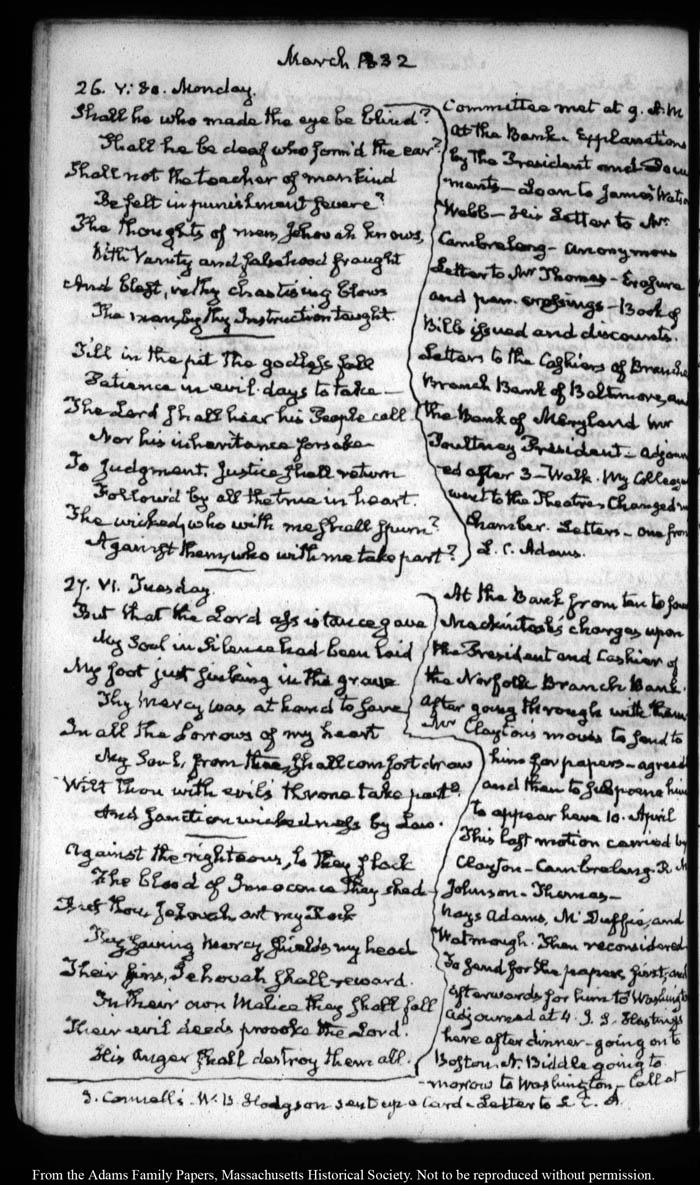 March 1832
26. V:30. Monday.
Shall he who made the eye be blind?
Shall he be deaf who form'd the ear?
Shall not the teacher of mankind
Be felt in punishment severe?
The thoughts of men, Jehovah knows,
With Vanity and falsehood fraught
And blest, is thy chastising blows
The man, by thy Instruction taught.
Till in the pit the godless fall
Patience in evil days to take—
The Lord shall hear his People call
Nor his inheritance forsake
To Judgment, Justice shall return
Follow'd by all the true in heart.
The wicked, who with me shall spurn?
Against them, who with me take part?
Committee met at 9. A.M
at the Bank. Explanations
by the President and Docu
ments— Loan to James Watson
Webb— His Letter to Mr
Cambreleng— anonymous
Letter to Mr Thomas— Erasure
and pen. crossings— Book of
Bills issued and discounts.
Letters to the Cashiers of Branches
Branch Bank of Baltimore, and
the Bank of Maryland Mr
Poultney President— adjourn
ed after 3— Walk. My Colleagues
went to the Theatre. Changed my
Chamber. Letters— one from
L. C. Adams.
27. VI. Tuesday.
But that the Lord assistance gave
My Soul in Silence had been laid
My foot just sinking in the grave
Thy Mercy was at hand to save
In all the sorrows of my heart
My Soul, from thee, shall comfort draw
Wilt thou with evils throne take part?
And sanction wickedness by Law.
Against the righteous, lo they flock
The blood of Innocence they shed
But thou, Jehovah art my Rock
Thy saving Mercy shields my head
Their sins, Jehovah shall reward.
In their own Malice they shall fall
Their evil deeds provoke the Lord.
His anger shall destroy them all.
At the Bank from ten to four
Mackintosh's charges upon
the President and Cashier of
the Norfolk Branch Bank.
After going through with them
Mr Clayton moves to send to
him for papers— agreed
and then to subpoena him
to appear here 10. April
This last motion carried by
Clayton— Cambreleng. R. M
Johnson— Thomas—
Nays Adams, McDuffie, and
Watmough. Then reconsidered
To send for the papers, first, and
afterwards for him to Washington
adjourned at 4. J. S. Hastings
here after dinner— going on to
Boston. N. Biddle going to
-morrow to Washington— Call at
J. Connell's. W. B. Hodgson sent up a Card— Letter to L. C. A.
From the Adams Family Papers, Massachusetts Historical Society. Not to be reproduced without permission.